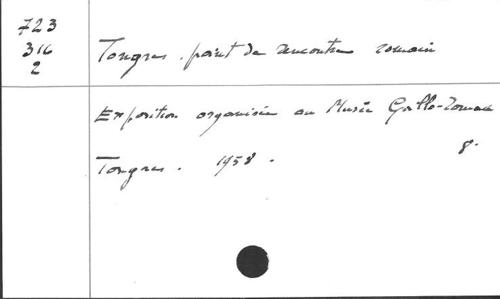 723
316
2
Tongres. point de rencontre romain
Exposition organisée au Musée Gallo-romain
8°
Tongres. 1958.